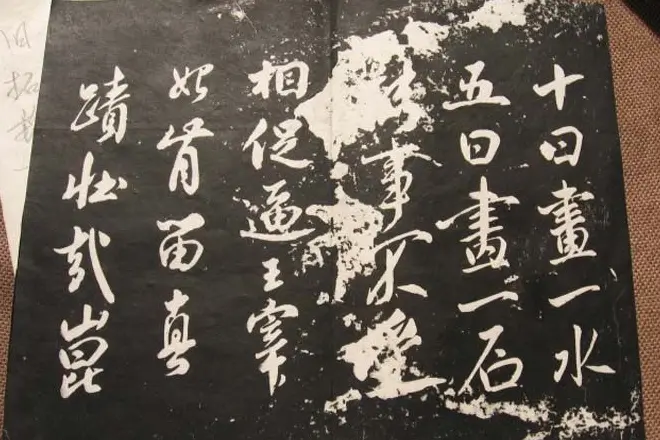 十日畫一水
五日畫一石
事不受
相促逼王宰
始肯留真
蹟壯哉崑
旧拓